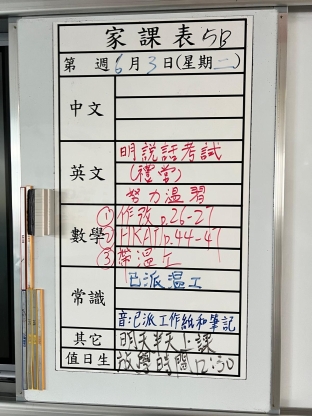 家課表 5B
第 週 6月3日(星期二)
中文
明説話考試
英文 (禮堂)
努力温習
① 作改 p.26-27
數學 ② HKAT p.44-47
③ 帶温工
已派温工
常識
音:已派工作紙和筆記
其它 明天半天上課
值日生 放學時間 12:30